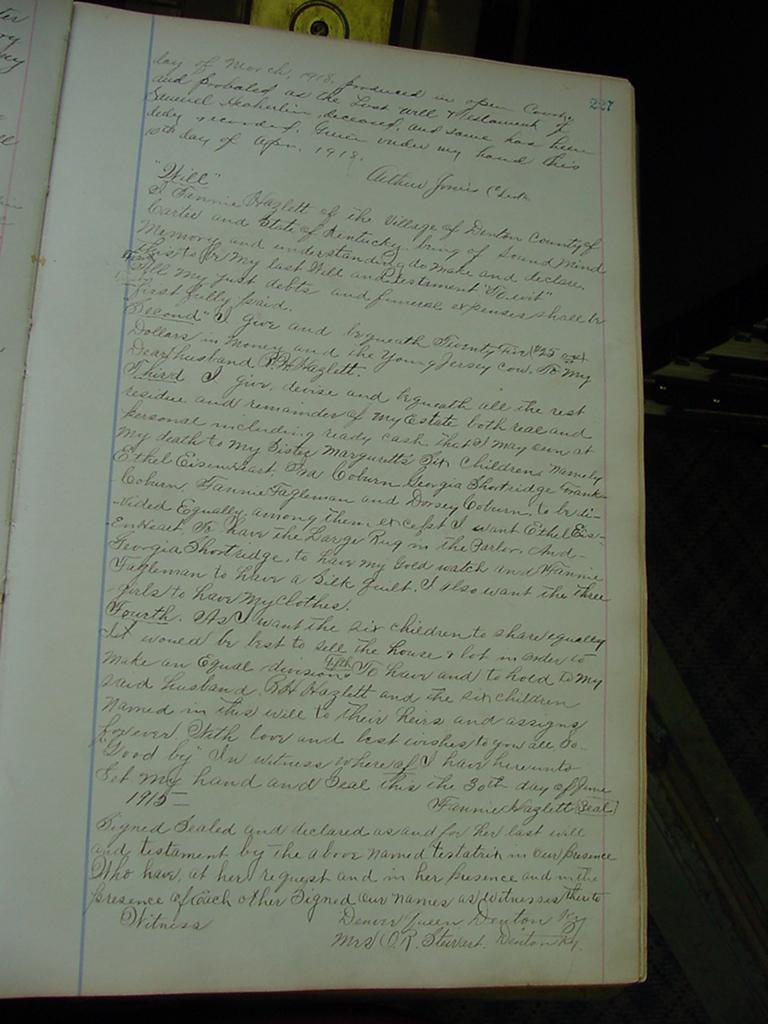 227
day of March, 1918, produced in open County
and probated as the Last Will & Testament of
Samuel deceased, and same has been
duly recorded. Given under my hand this
10th day of Apr. 1918.
Arthur Jones Clerk
"Will"
I Fannie Hazlett of the Village of Denton County of
Carter and State of Kentucky, being of Sound Mind
Memory and understanding do make and declare
this to be My last Will and Testament "To wit"
First All my just debts and funeral expenses shall be
first fully paid.
Second" I give and bequeath Twenty Five ($25
Dollars in money and the Young Jersey Cow. To my
Dear husband R. H. Hazlett.
Third I give, devise and bequeath all the rest
residue and remainder of my Estate both real and
personal including ready cash that I may own at
my death to my Sister Margurett's Six Children Namely
Ethel Eisenheart, Coburn, Georgia Shortridge, Frank
Coburn, Fannie Fagleman and Dorsey Coburn, to be di-
-vided Equally, among them, except I want Ethel Eis-
-Enheart. To have the Large Rug in the Parlor. And
Georgia Shortridge, to have my Gold watch and Fannie
Fagleman to have a Silk quilt. I also want the three
girls to have My Clothes.
Fourth. As I want the six children to share equally
It would be best to sell the house & lot in order to
make an Equal division. Fifth To have and to hold to my
said husband R H Hazlett and the six children
Named in this will to their heirs and assigns
forever. With love and best wishes to you all So-
"Good by" In witness where of I have here unto
Set My hand and Seal this the 30th day of June
1915 Fannie Hazlett (Seal)
Signed Sealed and declared as and for her last will
and testament by the above named testatrix in our presence
Who have, at her request and in her presence and in the
presence of each other Signed our names as witnesses thereto
Witness Denver Denton Ky
Mrs O. R. Stewart. Denton Ky.